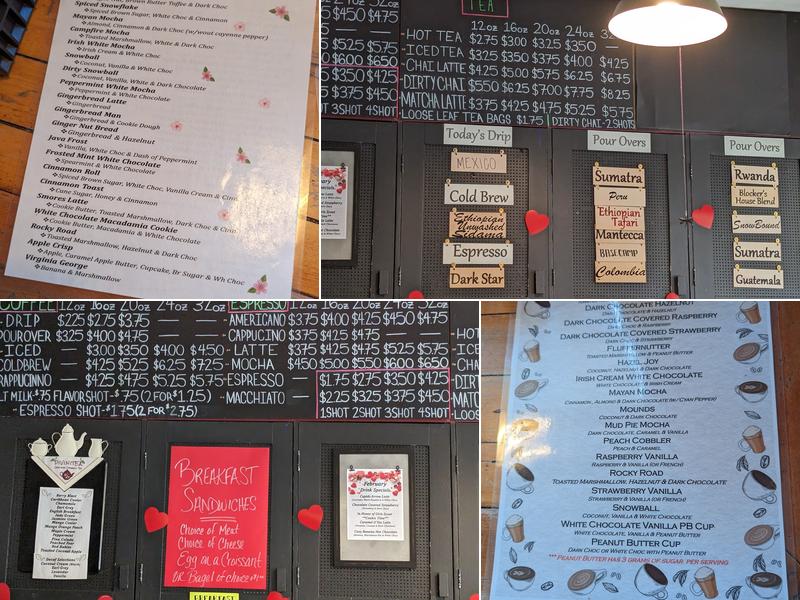 Brown Butter Toffee & Dark Choc
Spiced Snowflake
Spiced Brown Sugar, White Choc & Cinnamon
Mayan Mocha
Almond, Cinnamon & Dark Choc (w/wout cayenne pepper)
Campfire Mocha
Toasted Marshmallow, White & Dark Choc
Irish White Mocha
Irish Cream & White Choc
Snowball
Coconut, Vanilla & White Choc
Dirty Snowball
Coconut, Vanilla, White & Dark Chocolate
Peppermint White Mocha
Peppermint & White Chocolate
Gingerbread Latte
Gingerbread
Gingerbread Man
Gingerbread & Cookie Dough
Ginger Nut Bread
Gingerbread & Hazelnut
Java Frost
Vanilla, White Choc & Dash of Peppermint
Frosted Mint White Chocolate
Spearmint & White Chocolate
Cinnamon Roll
Spiced Brown Sugar, White Choc, Vanilla Cream & Cinn
Cinnamon Toast
Cane Sugar, Honey & Cinnamon
Smores Latte
Cookie Butter, Toasted Marshmallow, Dark Choc & Cinn
White Chocolate Macadamia Cookie
Cookie Butter, Macadamia & White Chocolate
Rocky Road
Toasted Marshmallow, Hazelnut & Dark Choc
Apple Crisp
Apple, Caramel Apple Butter, Cupcake, Br Sugar & Wh Choc
Virginia George
Banana & Marshmallow
TEA
12oz 16oz 20oz 24oz 32oz
-HOT TEA $2.75 $3.00 $3.25 $3.50 —
-ICED TEA $3.25 $3.50 $3.75 $4.00 $4.25
-CHAI LATTE $4.25 $5.00 $5.75 $6.25 $6.75
-DIRTY CHAI $5.50 $6.00 $7.00 $7.75 $8.25
-MATCHA LATTE $3.75 $4.25 $4.75 $5.25 $5.75
LOOSE LEAF TEA BAGS $1.75 DIRTY CHAI-2 SHOTS
$4.50 $4.75
$5.25 $5.75
$6.00 $6.50
$3.50 $4.25
$3.75 $4.50
3SHOT 4SHOT
Today's Drip
MEXICO
Cold Brew
Ethiopian
Unwashed
Sidama
Espresso
Dark Star
Pour Overs
Sumatra
Peru
Ethiopian
Tafari
Mantecca
BASECAMP
Colombia
Pour Overs
Rwanda
Blocker's
House Blend
SnowBound
Sumatra
Guatemala
COFFEE 12oz 16oz 20oz 24oz 32oz
-DRIP $2.25 $2.75 $3.75 — —
POUROVER $3.25 $4.00 $4.75 — —
-ICED — $3.00 $3.50 $4.00 $4.50
COLDBREW — $4.25 $5.25 $6.25 $7.25
FRAPPUCINNO — $4.25 $4.75 $5.25 $5.75
LT MILK-$.75 FLAVOR SHOT-$.75 (2 FOR $1.25)
- ESPRESSO SHOT-$1.75 (2 FOR $2.75)
ESPRESSO 12oz 16oz 20oz 24oz 32oz
-AMERICANO $3.75 $4.00 $4.25 $4.50 $4.75
-CAPPUCINO $3.75 $4.25 — — —
-LATTE $3.75 $4.25 $4.75 $5.25 $5.75
-MOCHA $4.50 $5.00 $5.50 $6.00 $6.50
-ESPRESSO — $1.75 $2.75 $3.50 $4.25
-MACCHIATO — $2.25 $3.25 $3.75 $4.50
1SHOT 2SHOT 3SHOT 4SHOT
-HOT
-ICE
-CHA
-DIRT
-MATC
LOOS
DIVINITEA
Berry Blast
Caribbean Cooler
Chamomile
Earl Grey
English Breakfast
Jade Green
Jasmine Green
Mango Cooler
Mango Orange Peach
Maple Cream
Peppermint
Pina Colada
Poached Pear
Red Rubies
Toasted Coconut Apple
Decaf Selections
Earl Grey
Lavender
Vanilla
BREAKFAST
SANDWICHES
Choice of Meat
Choice of Cheese
Egg on a Croissant
OR Bagel of choice
BREAKFAST
February
Drink Specials
Cupids Arrow Latte
Chocolate Covered Strawberry
In Honor of Girls Scout
"Cookie Time"
Caramel D'lite Latte
DARK CHOCOLATE HAZELNUT
DARK CHOCOLATE & HAZELNUT
DARK CHOCOLATE COVERED RASPBERRY
DARK CHOC & RASPBERRY
DARK CHOCOLATE COVERED STRAWBERRY
DARK CHOC & STRAWBERRY
FLUFFERNUTTER
TOASTED MARSHMALLOW & PEANUT BUTTER
HAZEL JOY
COCONUT, HAZELNUT & DARK CHOCOLATE
IRISH CREAM WHITE CHOCOLATE
WHITE CHOCOLATE & IRISH CREAM
MAYAN MOCHA
CINNAMON, ALMOND & DARK CHOCOLATE (W/CYAN PEPPER)
MOUNDS
COCONUT & DARK CHOCOLATE
MUD PIE MOCHA
DARK CHOCOLATE, CARAMEL & VANILLA
PEACH COBBLER
PEACH & CARAMEL
RASPBERRY VANILLA
RASPBERRY & VANILLA (OR FRENCH)
ROCKY ROAD
TOASTED MARSHMALLOW, HAZELNUT & DARK CHOCOLATE
STRAWBERRY VANILLA
STRAWBERRY & VANILLA (OR FRENCH)
SNOWBALL
COCONUT, VANILLA & WHITE CHOCOLATE
WHITE CHOCOLATE VANILLA PB CUP
WHITE CHOCOLATE, VANILLA & PEANUT BUTTER
PEANUT BUTTER CUP
DARK CHOC OR WHITE CHOC WITH PEANUT BUTTER
***PEANUT BUTTER HAS 3 GRAMS OF SUGAR PER SERVING